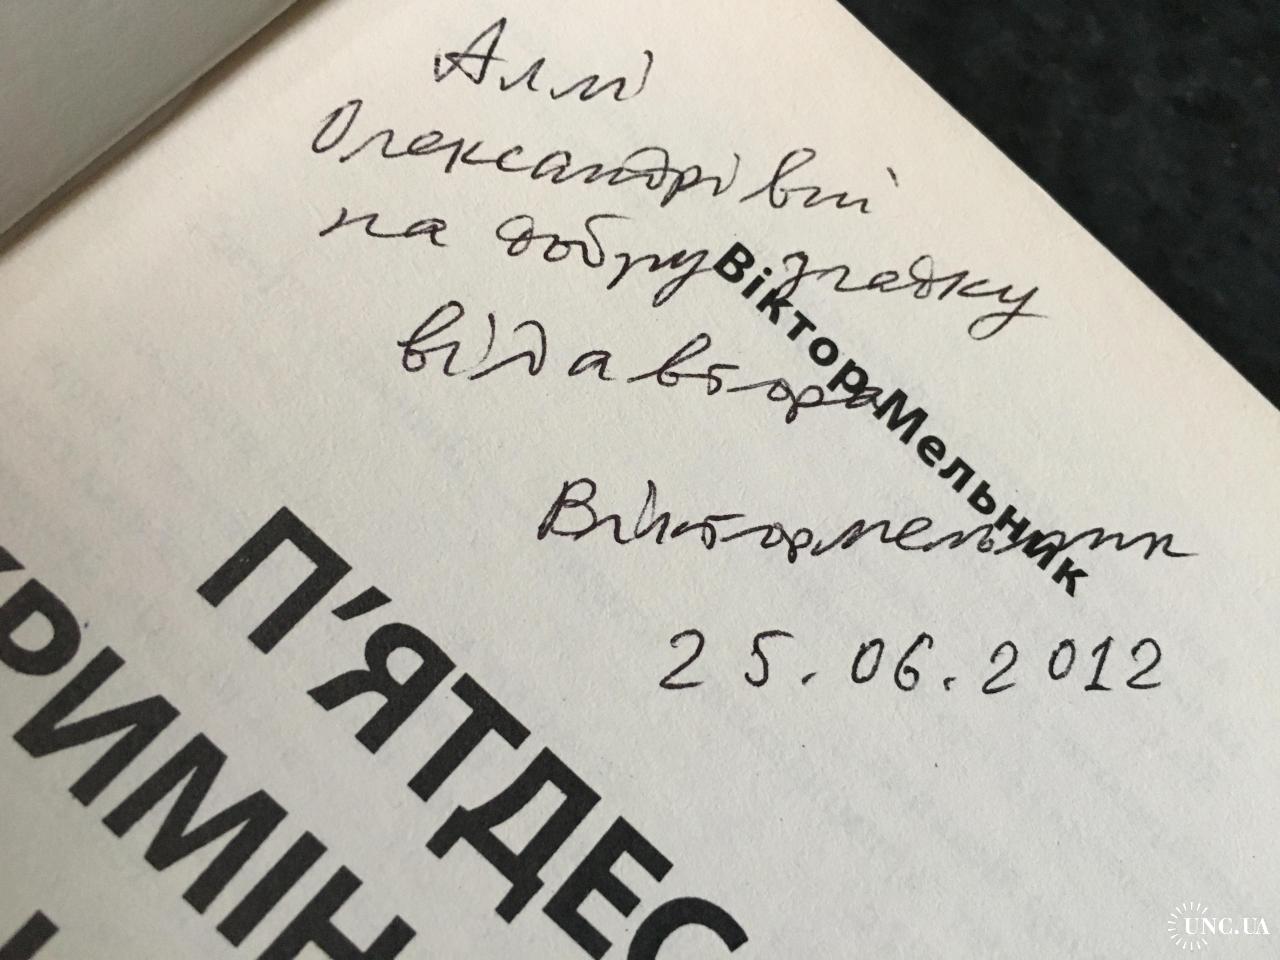 Аллі
Олександрівні
на добру згадку
від автора
Віктор Мельник
Віктор Мельник
25.06.2012
П'ЯТДЕС
РИМІН
UNC.UA